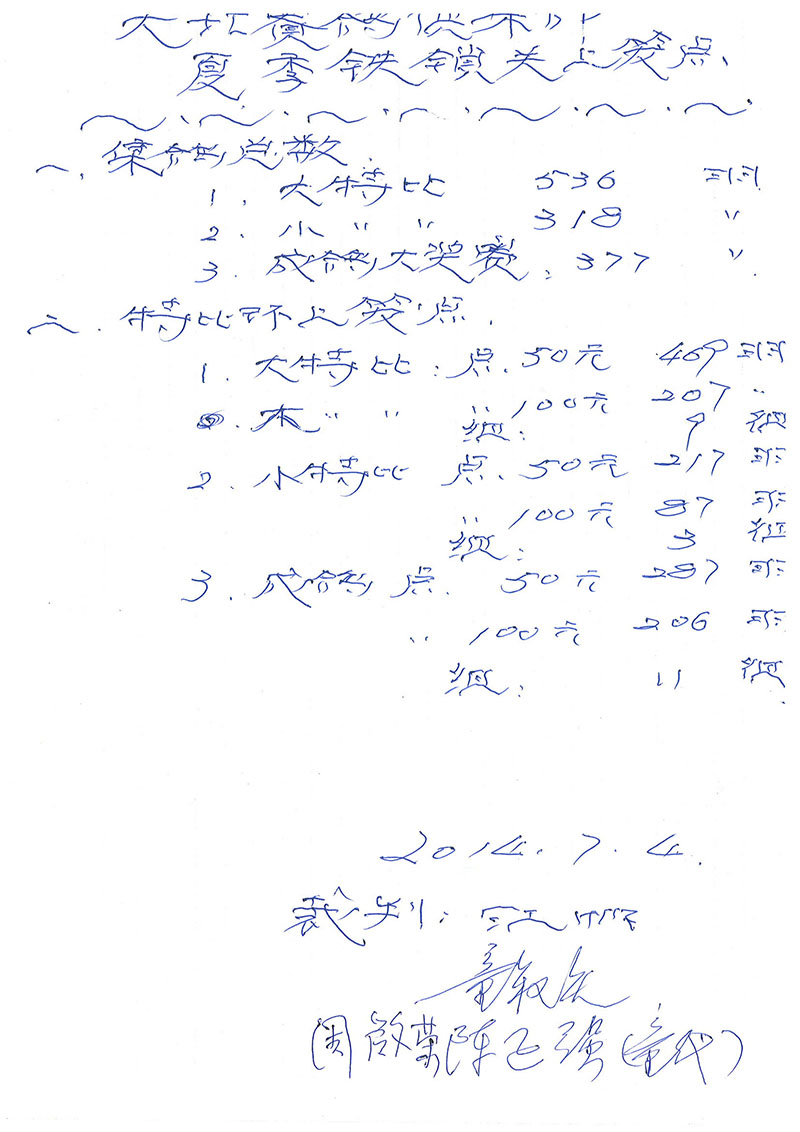 夏季铁锁关上笼点.
一. 集鸽总数.
1. 大特比 536 羽
2. 小 〃 〃 318 〃
3. 成鸽大奖赛: 377 〃
二. 特比环上笼点.
1. 大特比: 点. 50元 469 羽
〃 〃 〃 100元 207 〃
组: 9 组
2. 小特比 点. 50元 217 羽
〃 100元 87 羽
组: 3 组
3. 成鸽 点. 50元 287 羽
〃 100元 206 羽
组: 11 组
2014.7.4.
裁判:
周啟荣 陈飞强(童代)